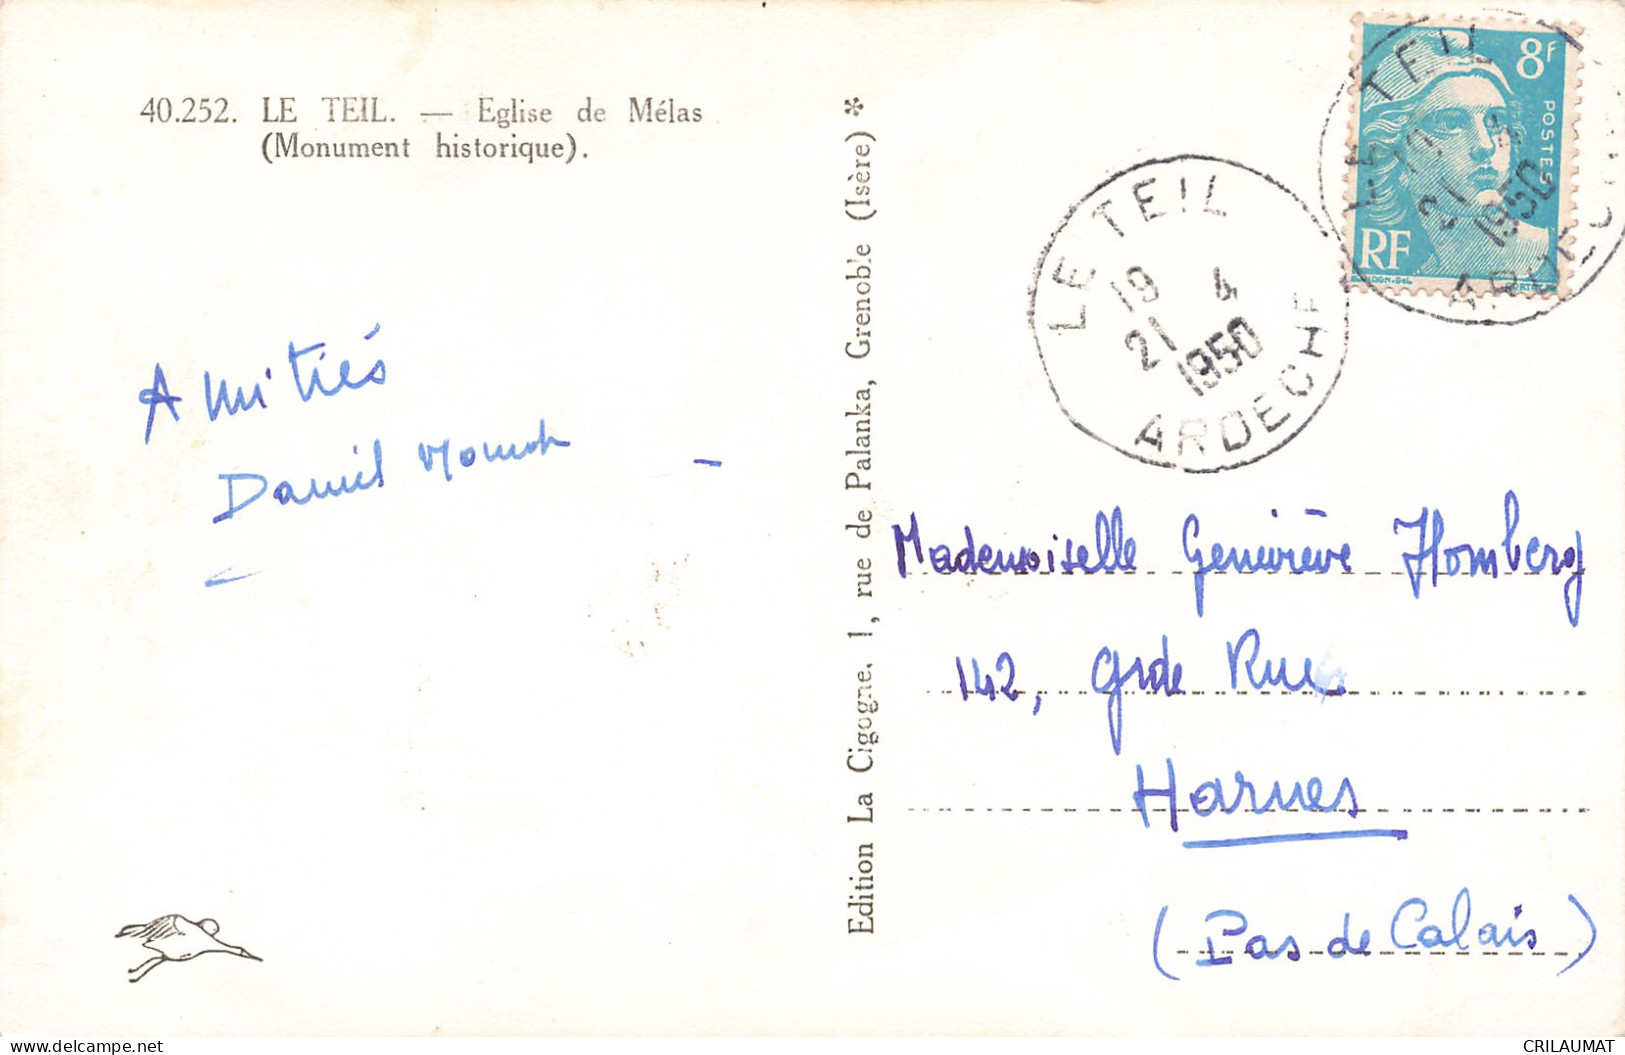 40.252. LE TEIL. — Eglise de Mélas
(Monument historique).
Amitiés
Daniel
Edition La Cigogne. 1, rue de Palanka, Grenoble (Isère) *
LE TEIL
19 4
21 1950
ARDECHE
LE TEIL
19 4
21 1950
ARDECHE
8F
POSTES
RF
Mademoiselle Geneviève Homberg
142, Grde Rue
Harnes
(Pas de Calais)
www.delcampe.net
CRILAUMAT